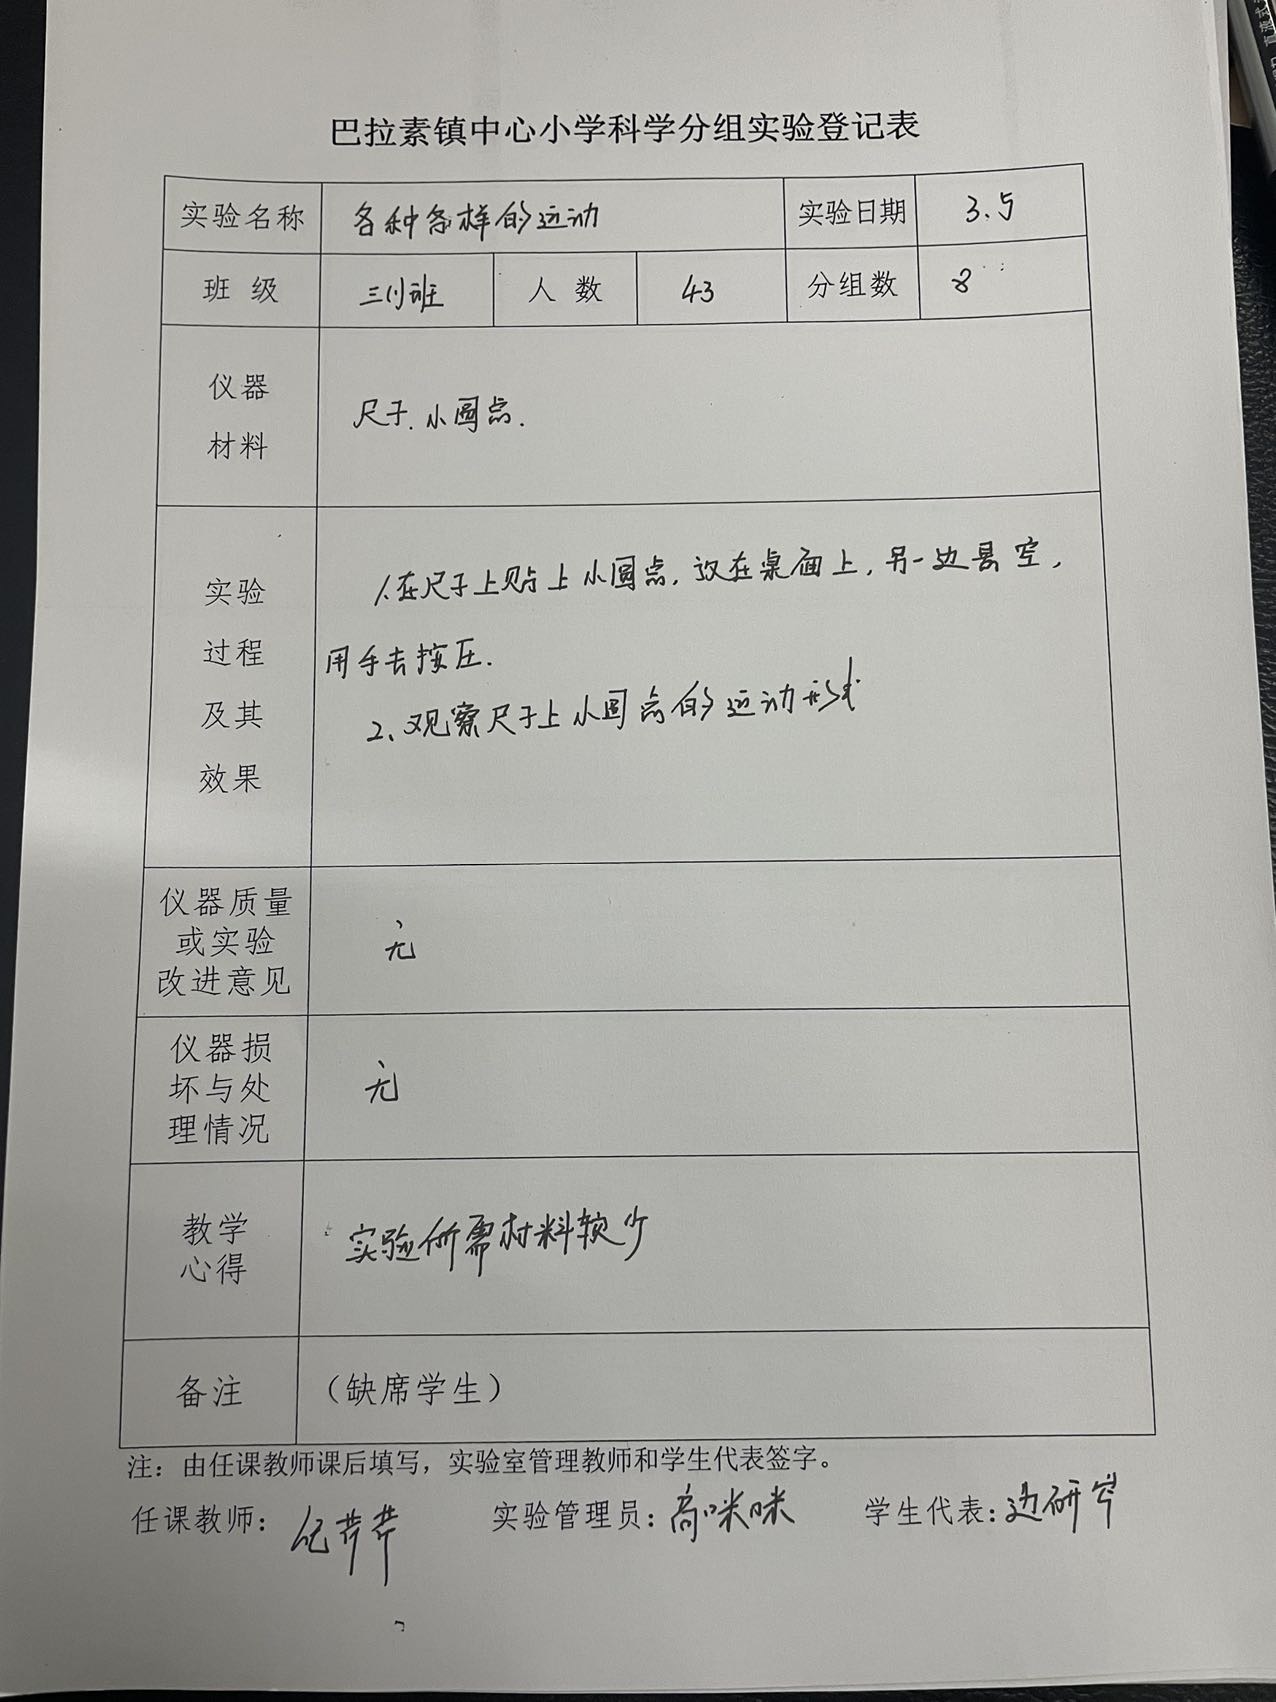 巴拉素镇中心小学科学分组实验登记表
实验名称 各种各样的运动 实验日期 3.5
班 级 三(1)班 人 数 43 分组数 8
仪器
材料
尺子.小圆点.
实验
过程
及其
效果
1.在尺子上贴上小圆点,放在桌面上,另一边悬空,
用手去按压.
2、观察尺子上小圆点的运动形式
仪器质量
或实验
改进意见
无
仪器损
坏与处
理情况
无
教学
心得
实验所需材料较少
备注 (缺席学生)
注：由任课教师课后填写，实验室管理教师和学生代表签字。
任课教师： 实验管理员：高咪咪 学生代表：边研